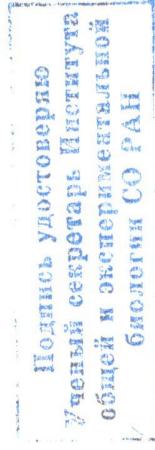 Подпись удостоверяю
Ученый секретарь Института
общей и экспериментальной
биологии СО РАН